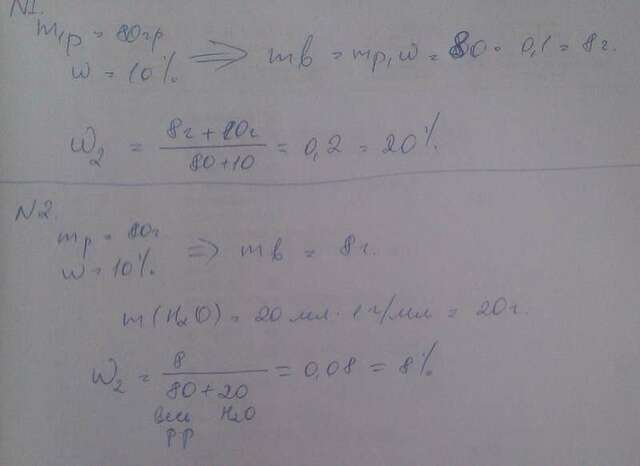 N1.
m₁р = 80гр
w = 10% ⇒ mв = mр₁w = 80 · 0,1 = 8г.
w₂ = (8г + 10г)/(80+10) = 0,2 = 20%
N2.
mр = 80г
w = 10% ⇒ mв = 8г.
m(H₂O) = 20 мл · 1 г/мл = 20г.
w₂ = 8/(80+20) = 0,08 = 8%
весь H₂O
р-р